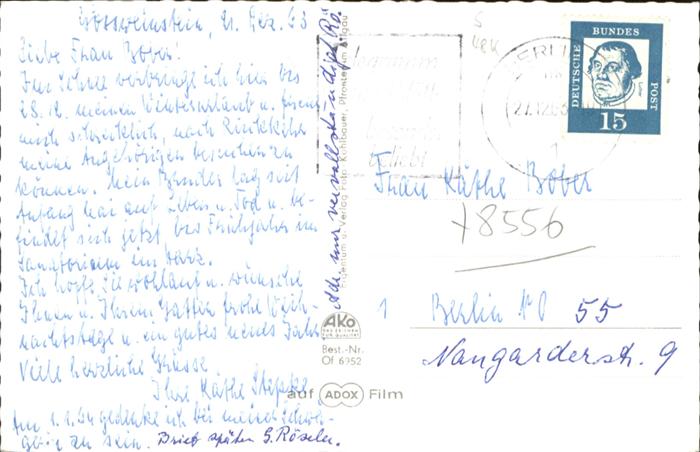 Gössweinstein, 21. Dez. 63
Liebe Frau Bober!
Im Schnee verbringe ich hier bis
28.12. meinen Winterurlaub u. freue
mich schrecklich, nach
meine Angehörigen besuchen zu
können. Mein Bruder lag seit
Anfang Mai auf Leben u. Tod u. be-
findet sich jetzt bis Frühjahr im
Sanatorium im Harz.
Ich hoffe Sie wohlauf u. wünsche
Ihnen u. Ihrem Gatten frohe Weih-
nachtstage u. ein gutes neues Jahr.
Viele herzliche Grüsse
Ihre Käthe
Am 1.1.64 gedenke ich bei meiner Schwä-
gerin zu sein. Brief später G. Röseler.
Adr. nur vervollständigt Rö.
Eigentum u. Verlag Foto Kohlbauer, Pfronten im Allgäu
AKO
DAS ZEICHEN
FÜR QUALITÄT
Best.-Nr.
Of 6952
auf ADOX Film
BERLIN
27.12.63
1
beliebt
DEUTSCHE BUNDESPOST
15
Frau Käthe Bober
78556
1 Berlin NO 55
Naugarderstr. 9